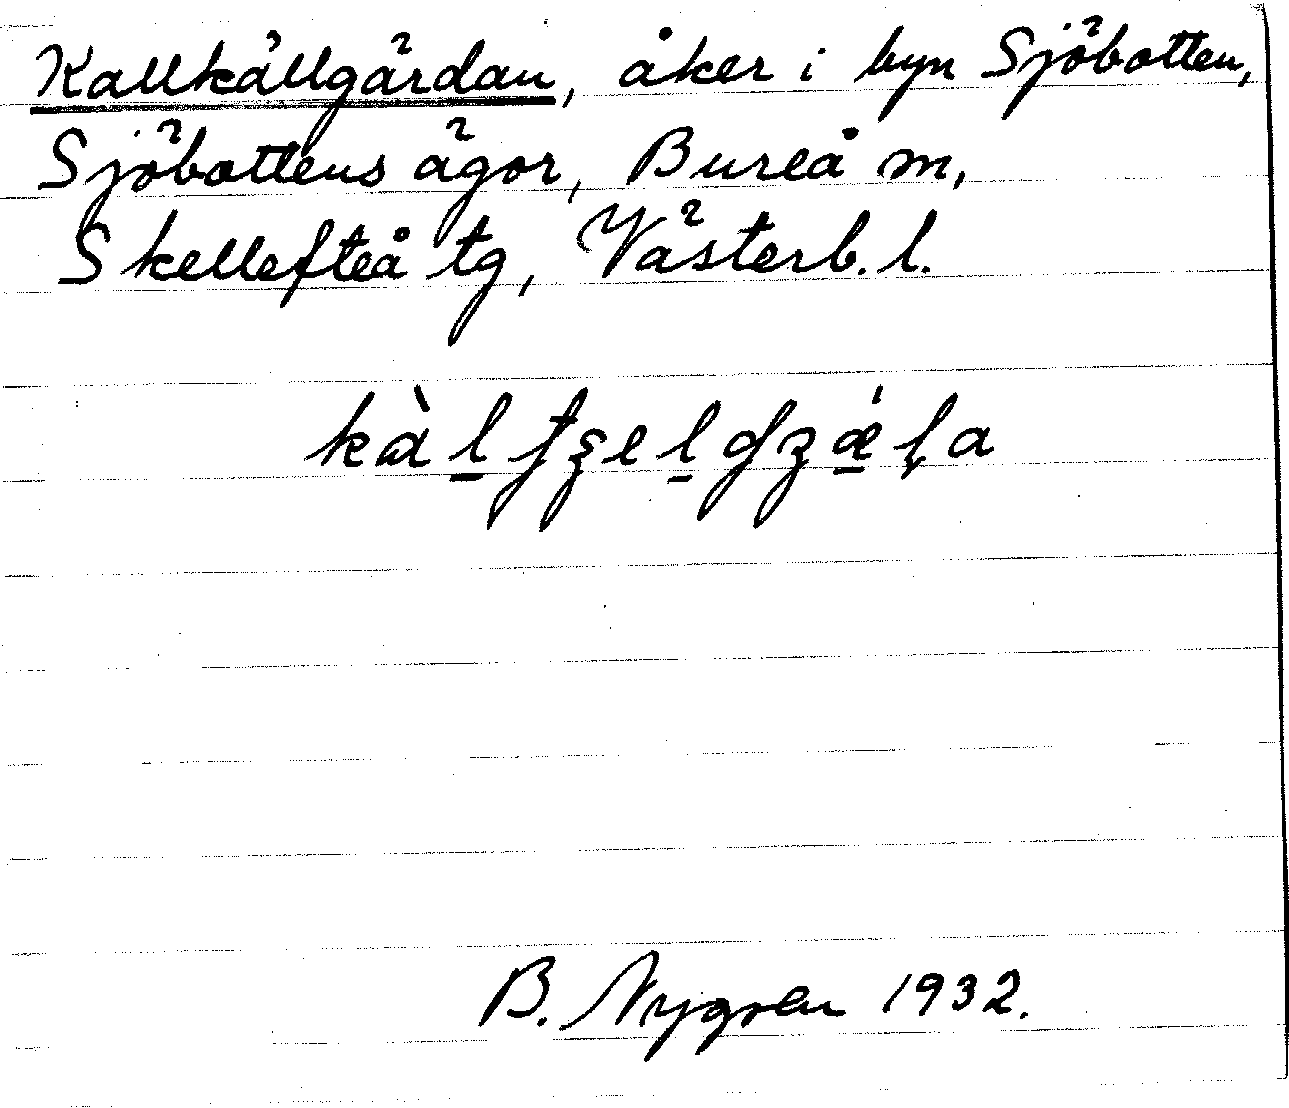 Kallkällgärdan, åker i byn Sjöbotten,
Sjöbottens ägor, Bureå m,
Skellefteå tg, Västerb. l.
B. Nygren 1932.